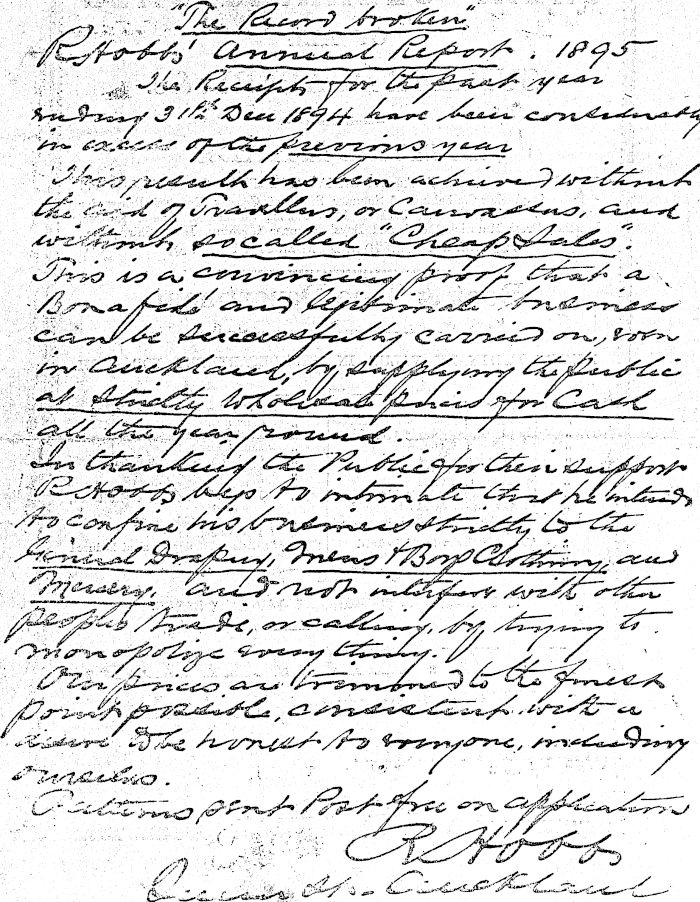 "The Record broken"
R Hobbs' Annual Report. 1895
The Receipts for the past year
ending 31st Dec 1894 have been considerably
in excess of the previous year
This result has been achieved without
the aid of Travellers, or Canvassers, and
without so called "Cheap Sales".
This is a convincing proof that a
Bonafide and legitimate business
can be successfully carried on, even
in Auckland, by supplying the public
at Strictly Wholesale prices for Cash
all the year round.
In thanking the Public for their support
R Hobbs begs to intimate that he intends
to confine his business strictly to the
General Drapery, Mens & Boys Clothing, and
Mercery, and not interfere with other
peoples trade, or calling, by trying to
monopolize everything.
Our prices are trimmed to the finest
point possible, consistent with a
desire to be honest to everyone, including
ourselves.
Patterns sent Post free on application
R Hobbs
Queen St. Auckland